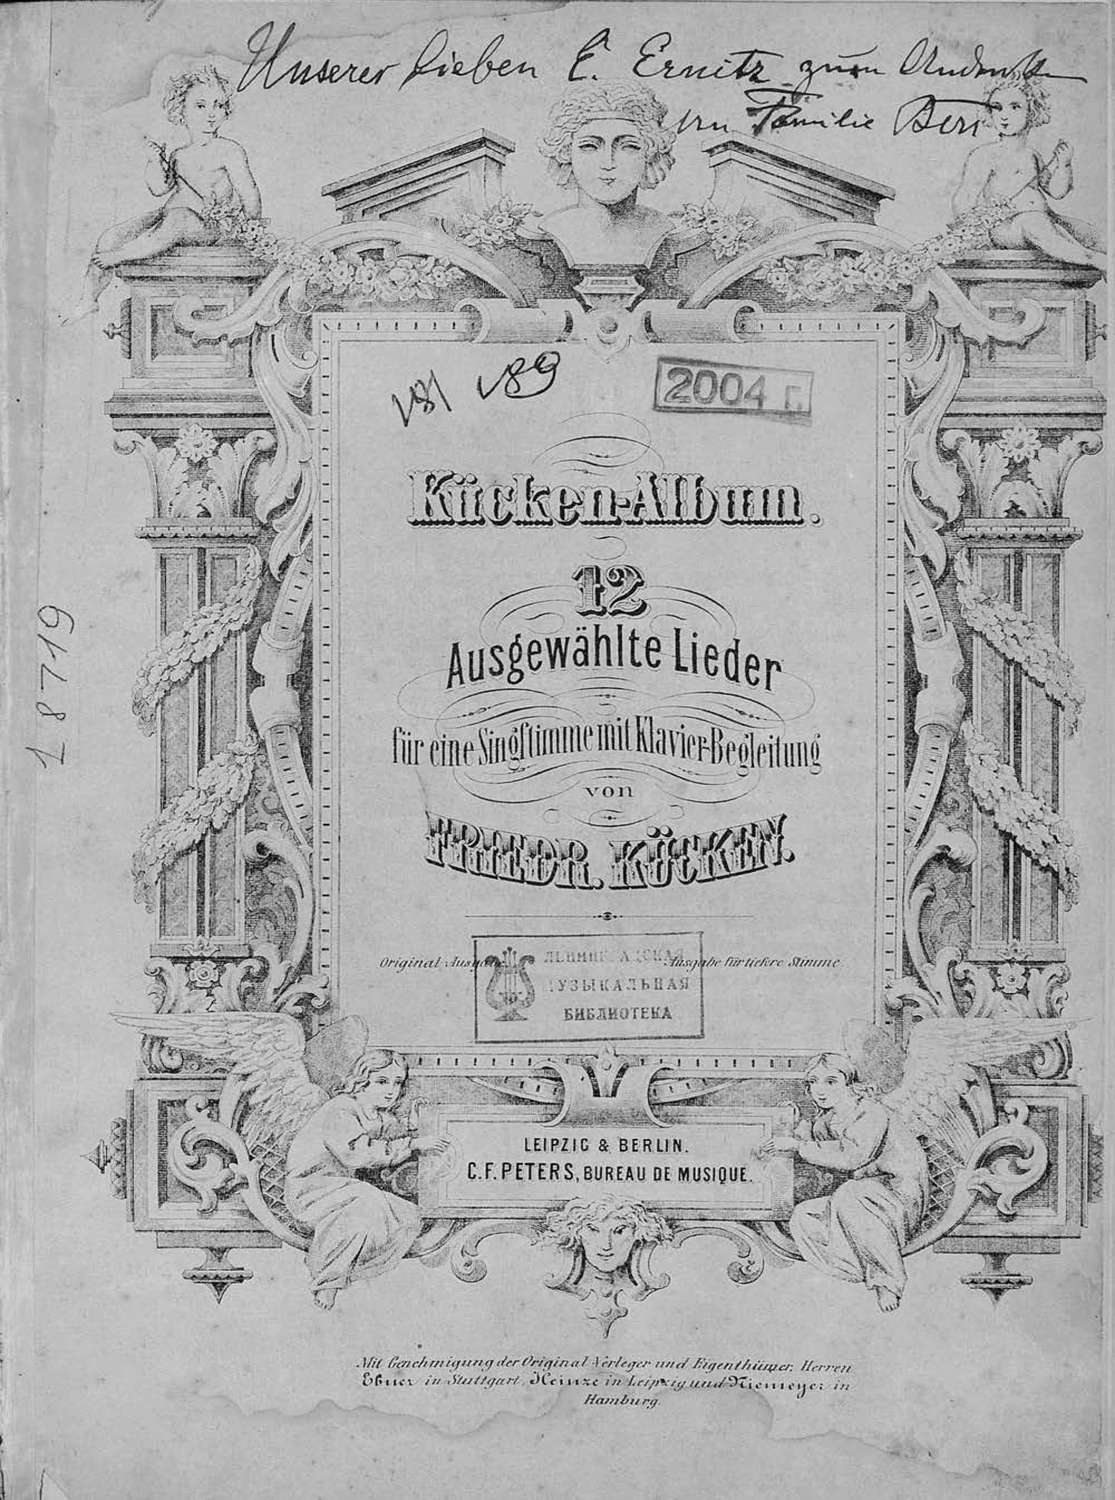 Unserer lieben E. Ernitz zum Andenken
von Familie Bers
181 189
2004 г.
Kücken-Album.
12
Ausgewählte Lieder
für eine Singstimme mit Klavier-Begleitung
von
FRIEDR. KÜCKEN.
Original-Ausgabe. Ausgabe für tiefere Stimme
ЛЕНИНГРАДСКАЯ
МУЗЫКАЛЬНАЯ
БИБЛИОТЕКА
18719
LEIPZIG & BERLIN.
C.F. PETERS, BUREAU DE MUSIQUE.
Mit Genehmigung der Original Verleger und Eigenthümer, Herren
Ebner in Stuttgart, Heinze in Leipzig und Niemeyer in
Hamburg.